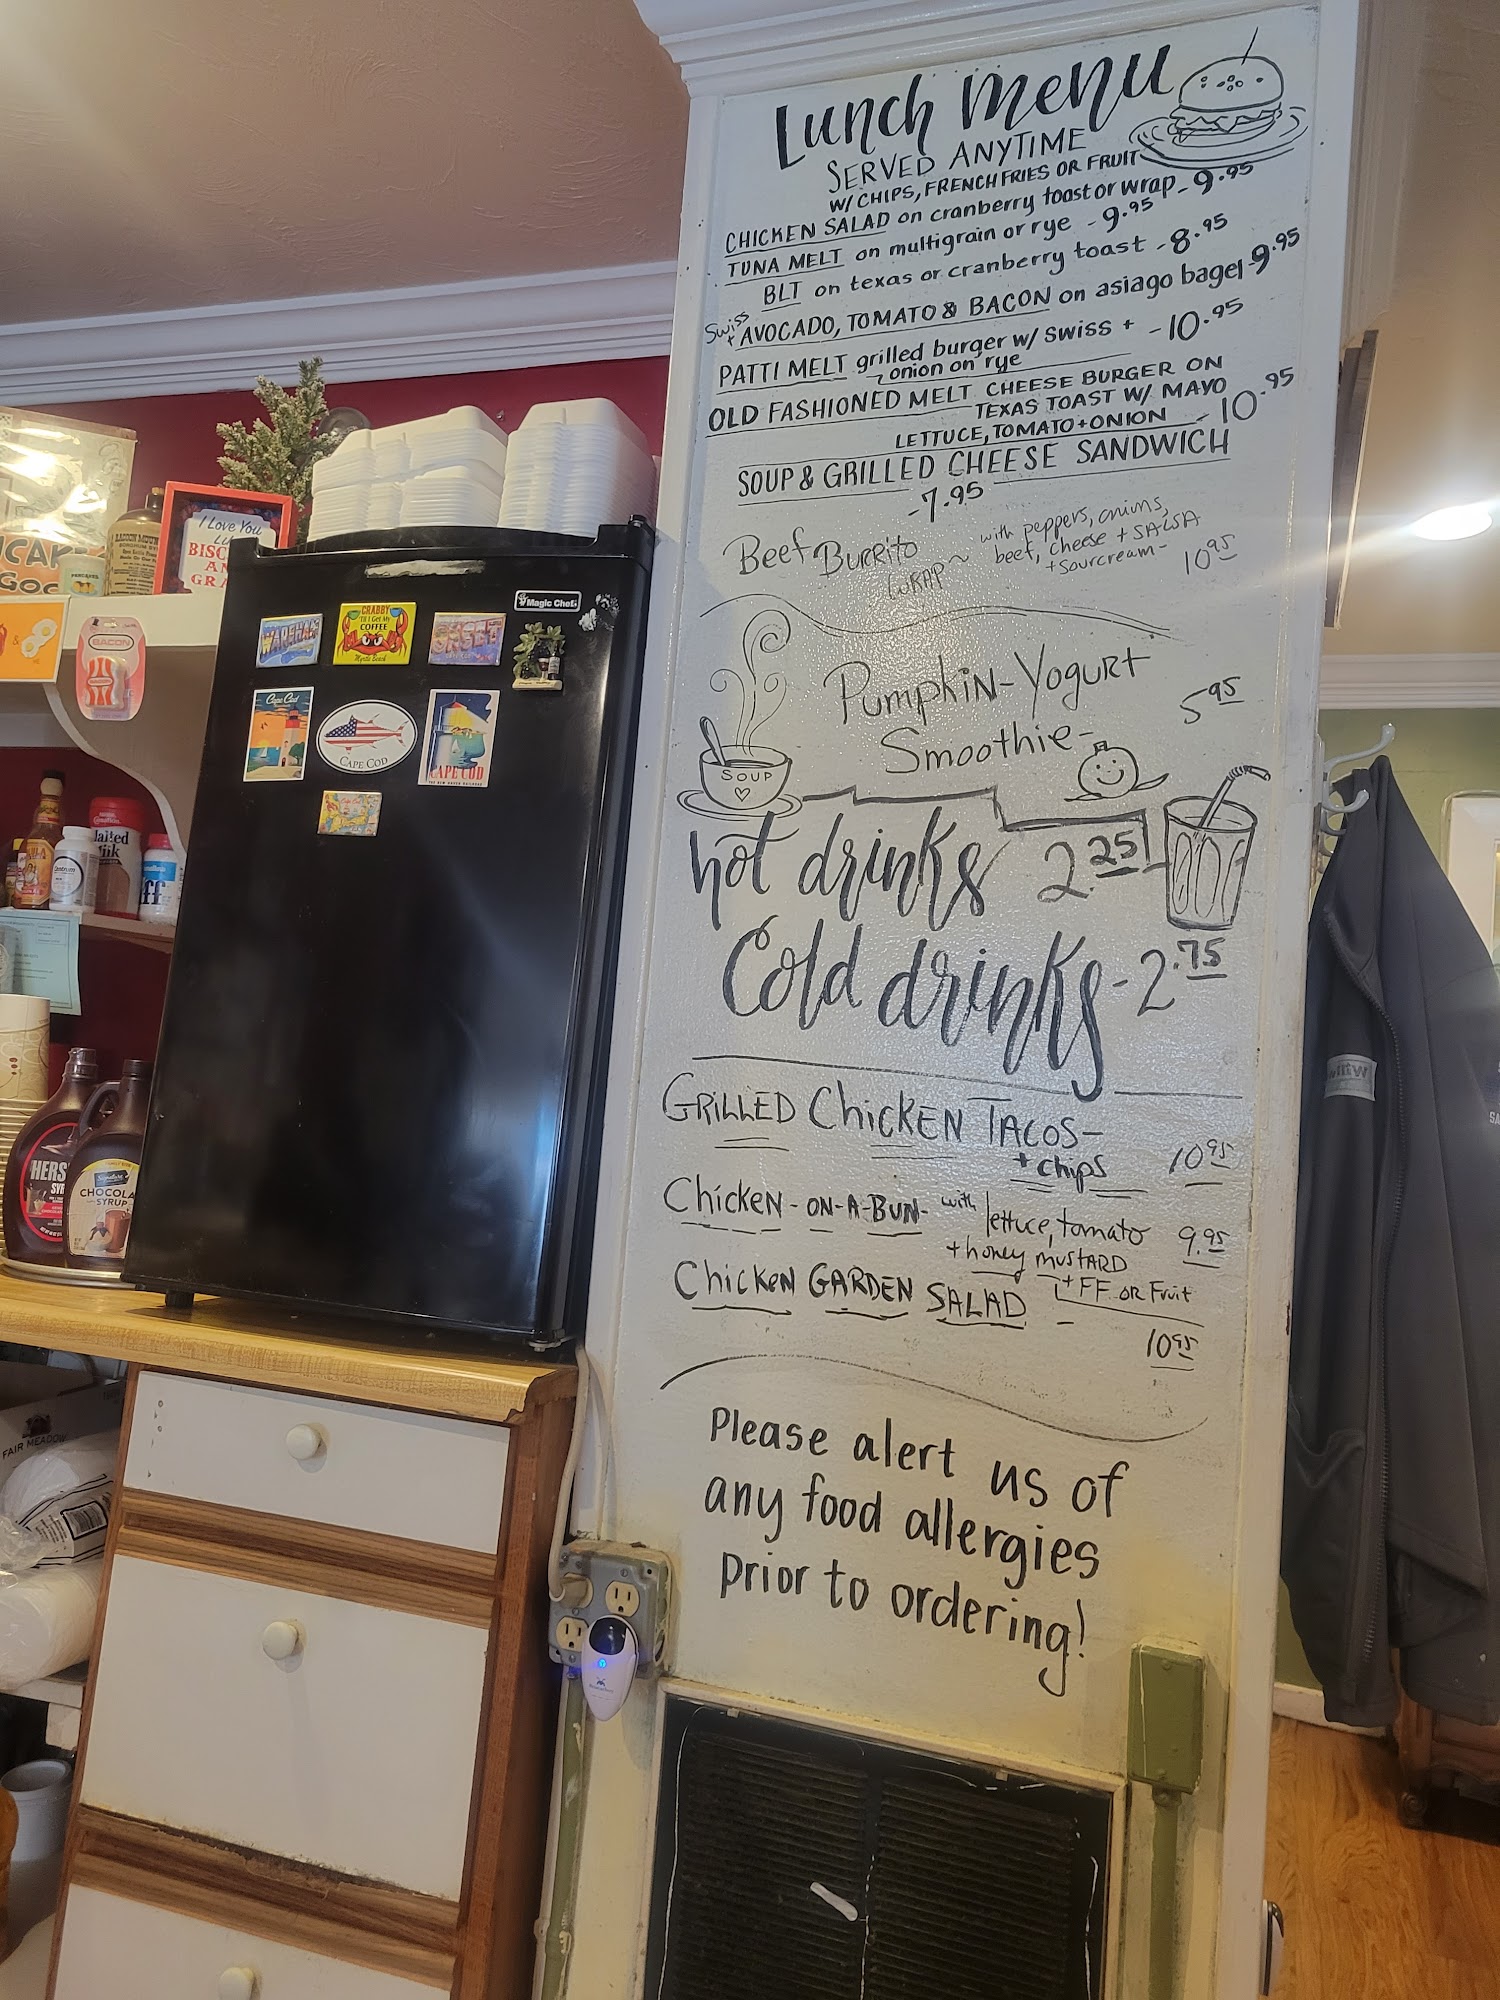 Lunch Menu
SERVED ANYTIME
W/ CHIPS, FRENCH FRIES OR FRUIT
CHICKEN SALAD on cranberry toast or wrap - 9.95
TUNA MELT on multigrain or rye - 9.95
BLT on texas or cranberry toast - 8.95
Swiss +
AVOCADO, TOMATO & BACON on asiago bagel 9.95
PATTI MELT grilled burger w/ swiss + - 10.95
onion on rye
OLD FASHIONED MELT CHEESE BURGER ON
TEXAS TOAST W/ MAYO
LETTUCE, TOMATO + ONION - 10.95
SOUP & GRILLED CHEESE SANDWICH
- 7.95
Beef Burrito WRAP ~ with peppers, onions,
beef, cheese + SALSA
+ sourcream - 10.95
Pumpkin - Yogurt
Smoothie - 5.95
SOUP
hot drinks 2.25
Cold drinks - 2.75
GRILLED ChicKEN TACOS -
+ chips 10.95
Chicken - ON - A - BUN - with lettuce, tomato 9.95
+ honey mustARD
+ FF OR Fruit
Chicken GARDEN SALAD -
10.95
Please alert us of
any food allergies
prior to ordering!
Magic Chef
WAREHAM
CRABBY
'Til I Get My
COFFEE
Myrtle Beach
Cape Cod
CAPE COD
CAPE COD
I Love You
BISC
AN
GRA
BACON
HERS
SY
CHOCOLA
SYRUP
FAIR MEADOW